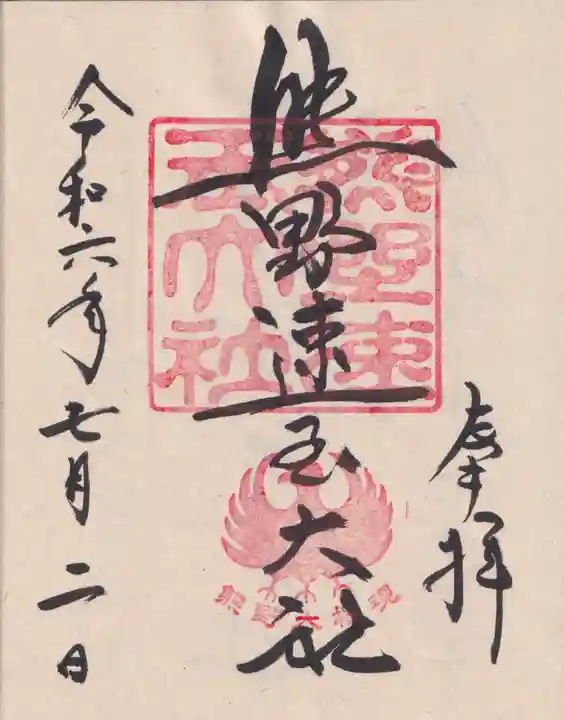 奉拝
熊野速玉大社
熊野速
玉大社
令和六年七月二日